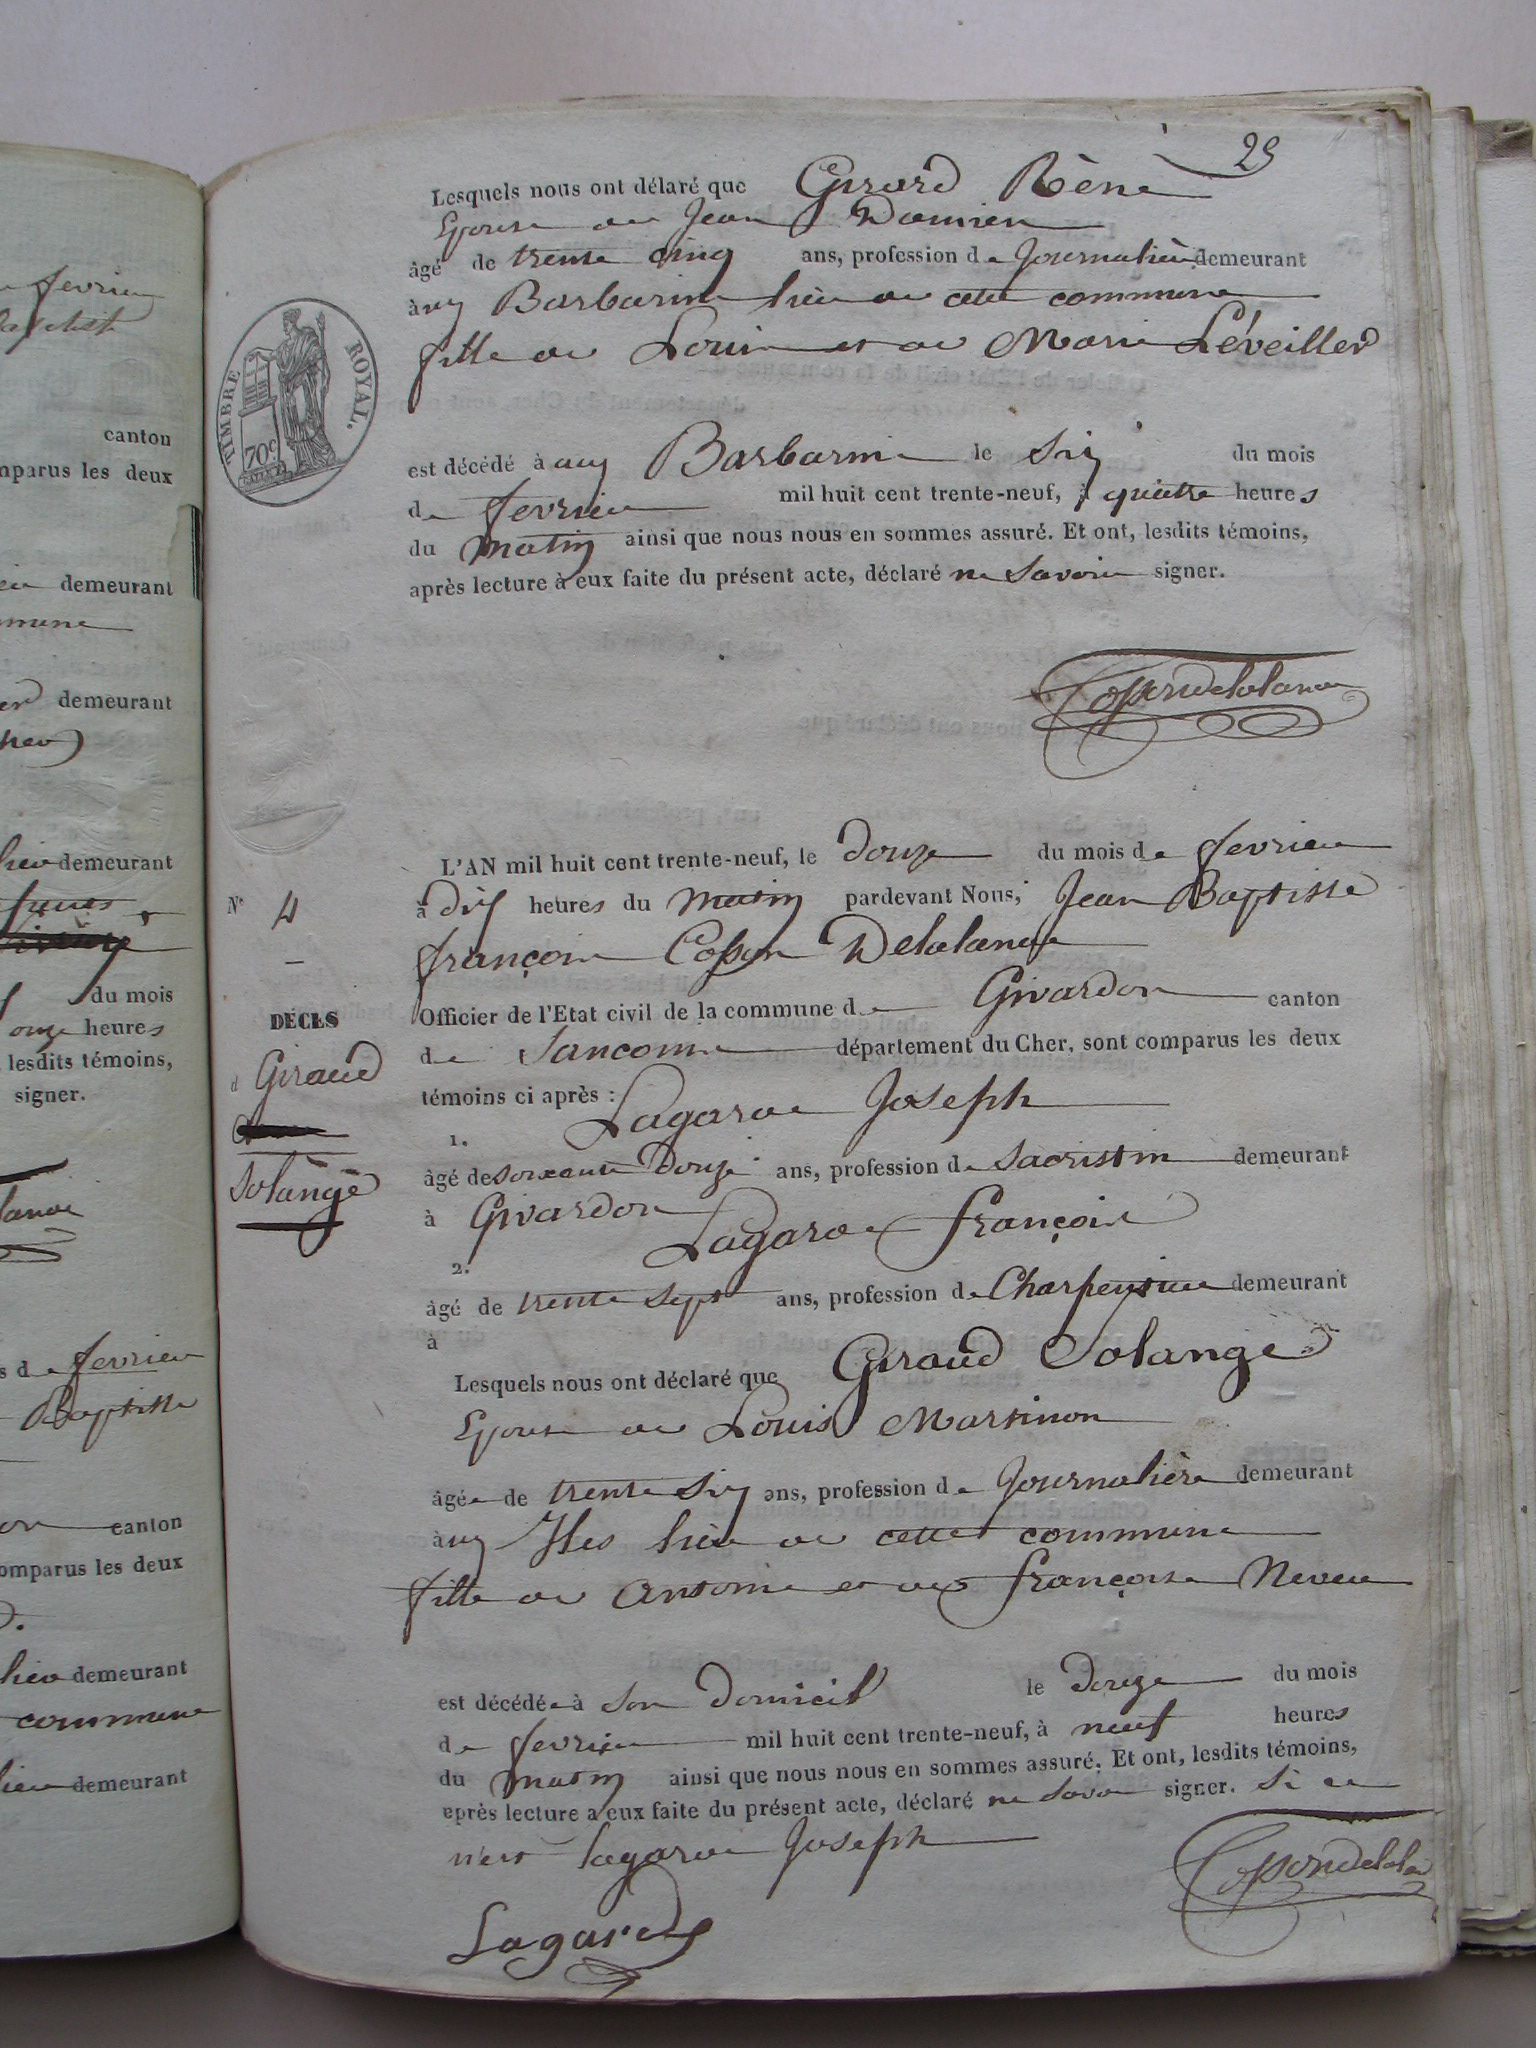 29
Lesquels nous ont délaré que Girard Rène
Epouse de Jean Damien
âgé de trente cinq ans, profession de Journalière demeurant
à aux Barbarins lieu de cette commune
fille de Louis et de Marie Léveiller
TIMBRE ROYAL.
70 c.
est décédé à aux Barbarins le six du mois
de fevrier mil huit cent trente-neuf, à quatre heures
du matin ainsi que nous nous en sommes assuré. Et ont, lesdits témoins,
après lecture à eux faite du présent acte, déclaré ne Savoir signer.
Coponsdelalande
L'AN mil huit cent trente-neuf, le Douze du mois de fevrier
Ne 4
à dix heures du matin pardevant Nous, Jean Baptiste
françois Delalande
DÉCES
Officier de l'Etat civil de la commune de Givardon canton
de Sancoins département du Cher, sont comparus les deux
d Giraud
témoins ci après :
Solange
1. Lagarde Joseph
âgé de soixante Douze ans, profession de sacristin demeurant
à Givardon
2. Lagarde françois
âgé de trente sept ans, profession de Charpentier demeurant
à
Lesquels nous ont déclaré que Giraud Solange
Epouse de Louis Martinon
âgée de trente six ans, profession de Journalière demeurant
à aux Iles lieu de cette commune
fille de Antoine et de françoise Neveu
est décédée à son Domicil le Douze du mois
de fevrier mil huit cent trente-neuf, à neuf heures
du matin ainsi que nous nous en sommes assuré. Et ont, lesdits témoins,
après lecture a eux faite du présent acte, déclaré ne savoir signer. Si ce
n'est Lagarde Joseph
Lagarde
fevrier
canton
mparus les deux
demeurant
demeurant
demeurant
du mois
onze heures
lesdits témoins,
signer.
s de fevrier
Baptiste
canton
omparus les deux
demeurant
commune
demeurant